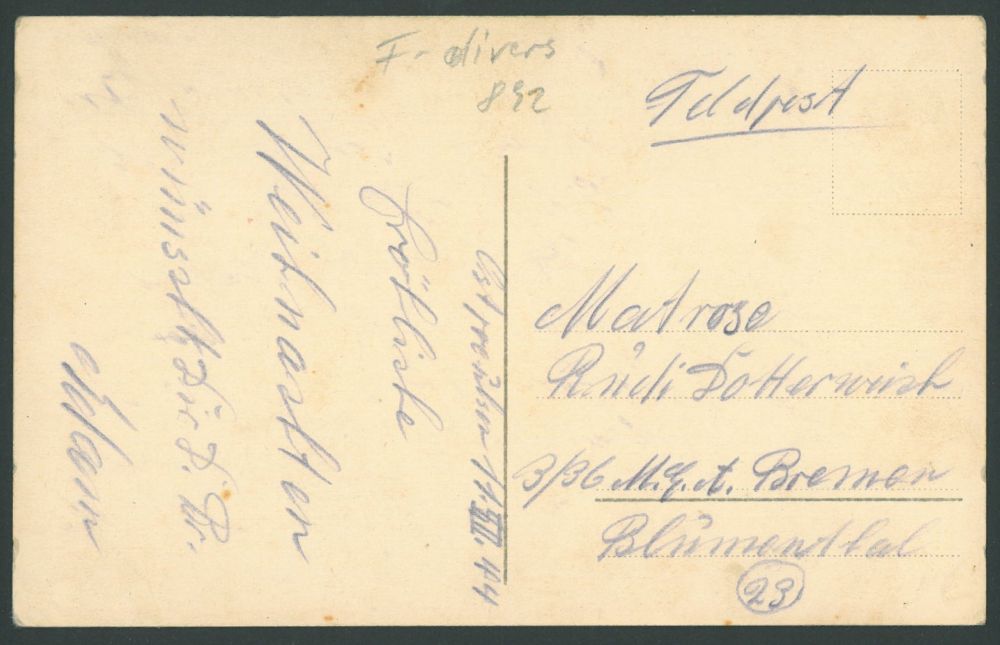 F- divers
892
Feldpost
Matrose
Rudi Dotterweich
3/36 M.E.A. Bremen
Blumenthal
23
Ostpreußen 17.XII.44
Fröhliche
Weihnachten
wünscht Dir D. Br.